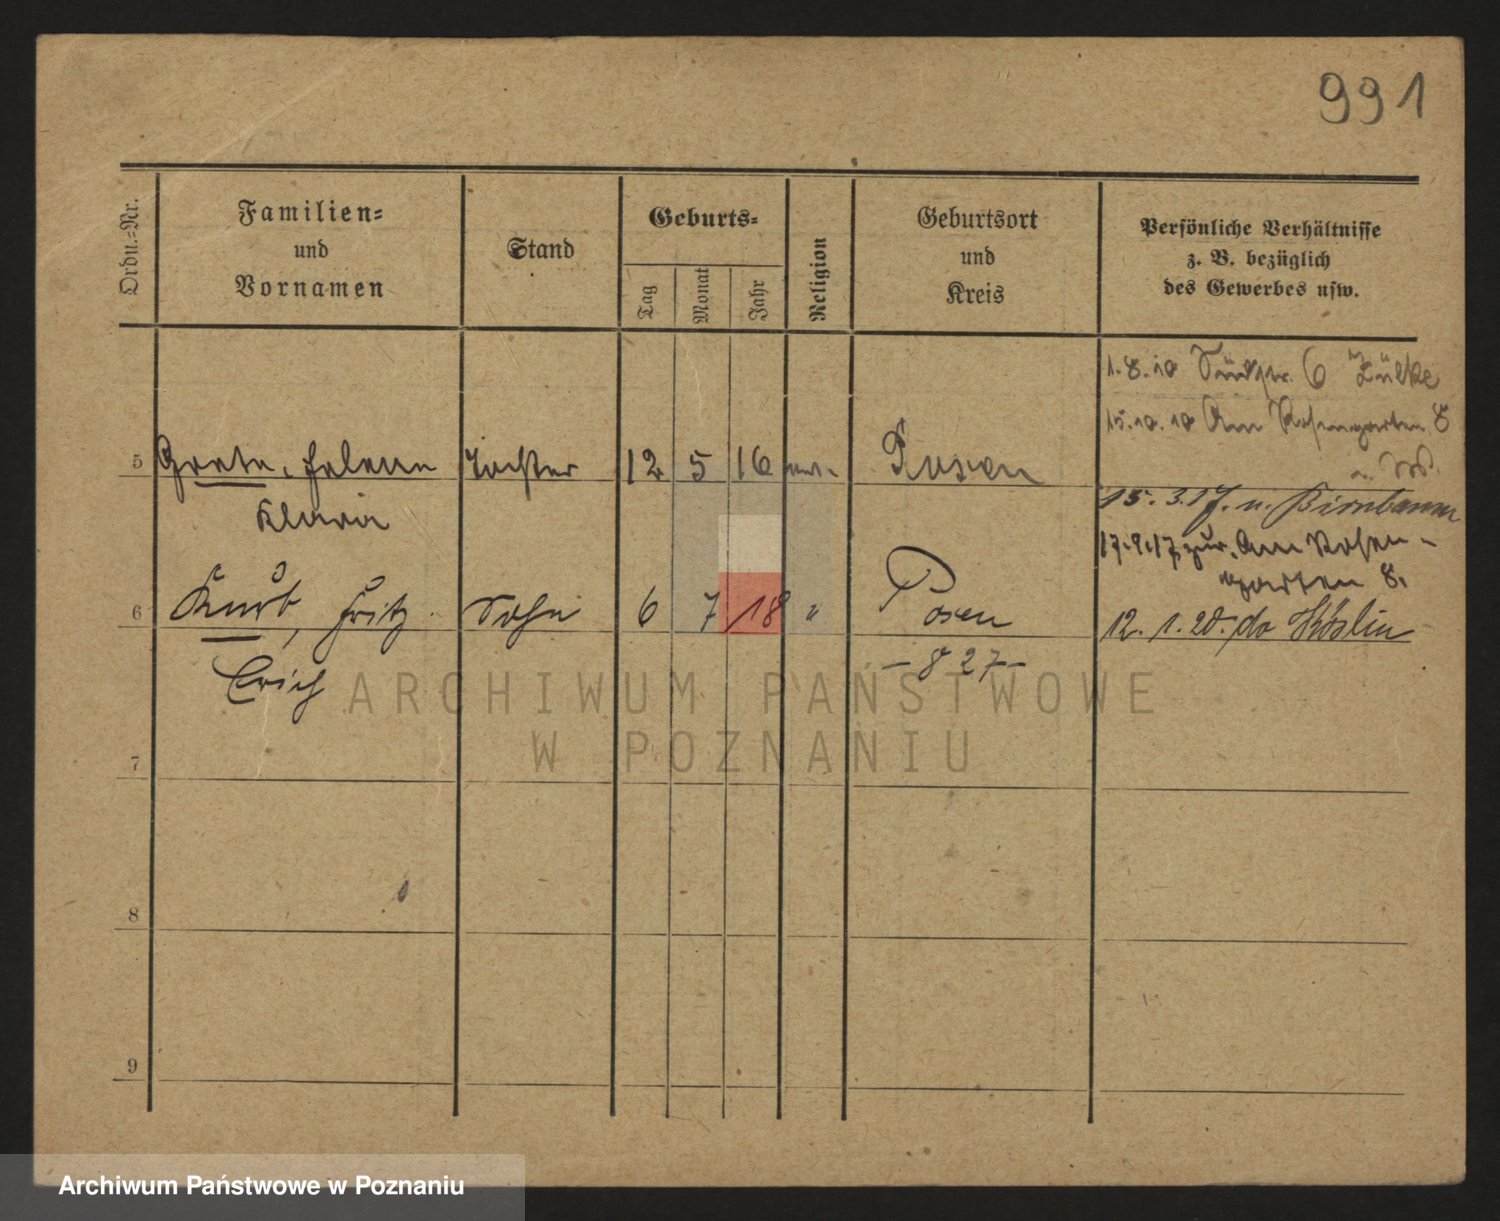 991
Ordn.=Nr.
Familien=
und
Vornamen
Stand
Geburts=
Tag
Monat
Jahr
Religion
Geburtsort
und
Kreis
Persönliche Verhältnisse
z. B. bezüglich
des Gewerbes usw.
1.8.10 Südstr. 6 Zülke
15.10.10 Am Rosengarten 8
5 Grete, Helene Tochter 12 5 16 Posen
Klara
15.3.17. n. Birnbaum
17.9.17 zur. Am Rosen-
garten 8.
6 Kurt, Fritz Sohn 6 7 18 " Posen
12. 1. 20. do Köslin
Erich
-827-
ARCHIWUM PAŃSTWOWE
W POZNANIU
7
8
9
Archiwum Państwowe w Poznaniu